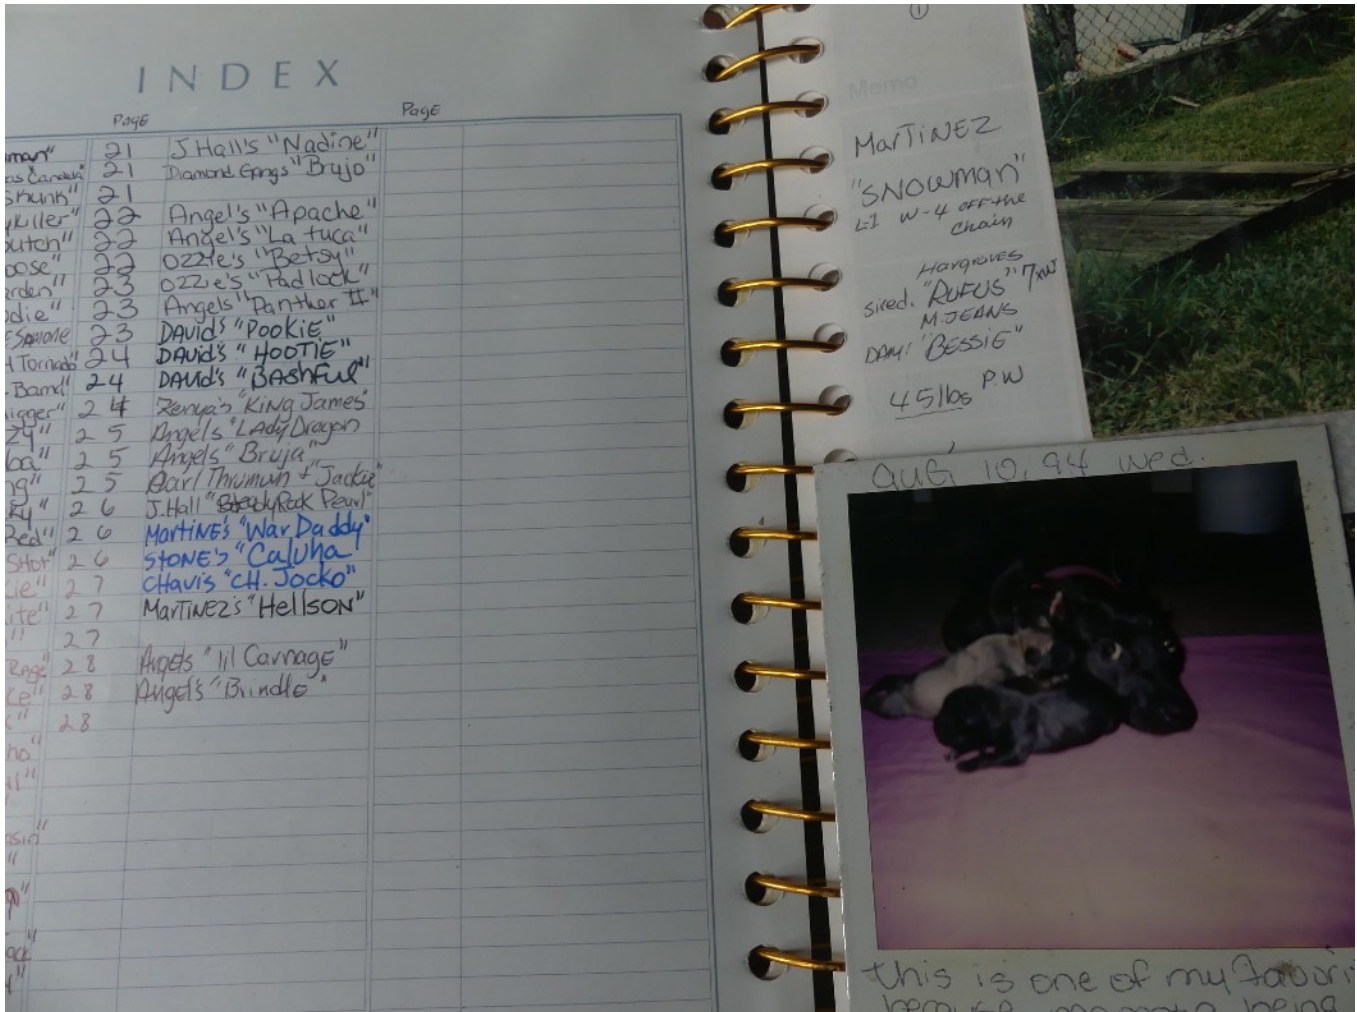 INDEX
Page Page
man" 21 J.Hall's "Nadine"
21 Diamond Gangs "Brujo"
Skunk" 21
killer" 22 Angel's "Apache"
Dutch" 22 Angel's "La tuca"
oose" 22 Ozzie's "Betsy"
rden" 23 Ozzie's "Padlock"
odie" 23 Angels "Panther II"
23 DAVID's "POOKIE"
Tornado" 24 DAVID's "HOOTIE"
Bama" 24 DAVID's "BASHFUL"
igger" 24 Zenya's "KiNg JAMES"
zy" 25 Angels "LAdy Dragon
ba" 25 Angels "Bruja"
ng" 25 Earl Thrumun + "Jackie"
ky" 26 J.Hall "Rock Pearl"
Red" 26 MartiNE's "War Daddy"
Shor" 26 STONE's "Caluha"
kie" 27 CHavis "CH. Jocko"
ite" 27 MarTiNEZ's "HellSON"
" 27
RAGE" 28 Angels "lil Carnage"
ke" 28 Angel's "BrindlE"
k" 28
ho"
al"
sin"
"
ock"
"
1
Memo
MarTiNEZ
"SNOWMAN"
L-1 W-4 off-the
chain
Hargroves
sired. "RUFUS" 7xW
M.JEANS
DAM: "BESSIE"
45lbs P.W
AUG 10, 94 Wed.
this is one of my favori
because being